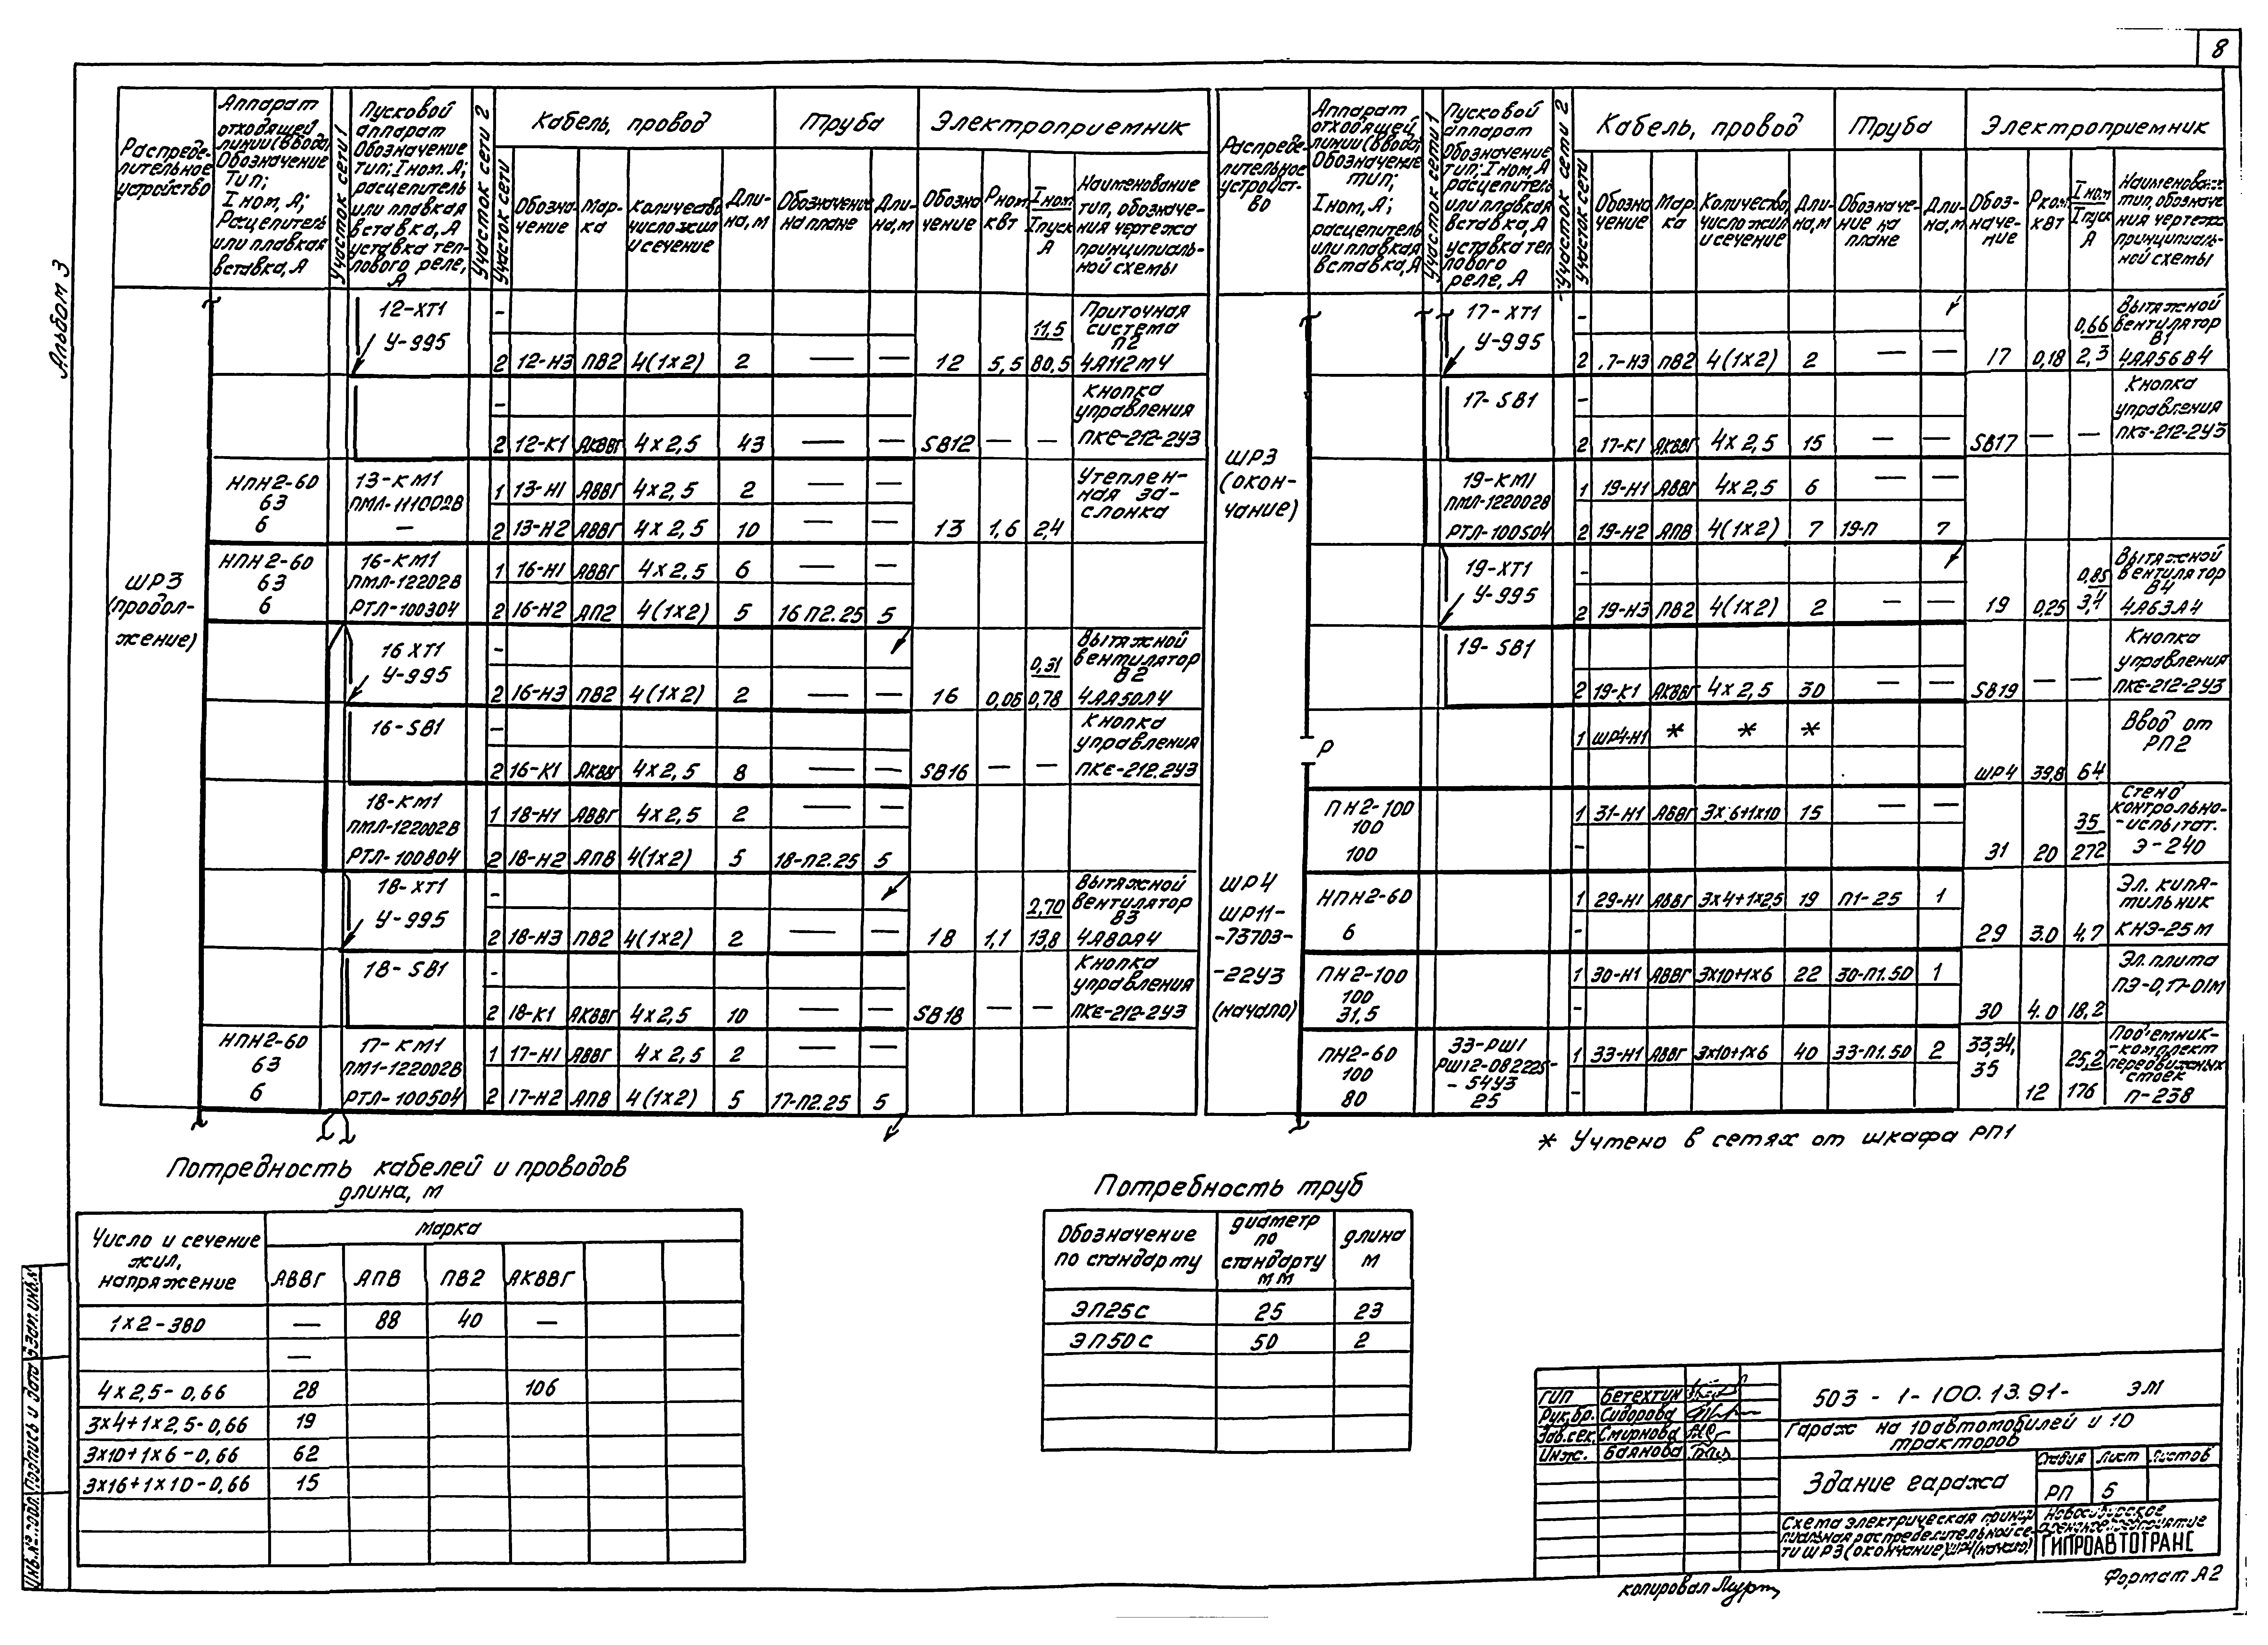 8
Альбом 3
Распреде-
лительное
устройство
Аппарат
отходящей
линии (ввода)
Обозначение
Тип;
Iном, А;
Расцепитель
или плавкая
вставка, А
Участок сети 1
Пусковой
аппарат
Обозначение
тип; Iном. А;
расцепитель
или плавкая
вставка, А
уставка теп-
лового реле,
А
Участок сети 2
Участок сети
Кабель, провод
Труба
Электроприемник
Обозна-
чение
Мар-
ка
Количество,
число жил
и сечение
Дли-
на, м
Обозначение
на плане
Дли-
на, м
Обозна-
чение
Рном
кВт
Iном
Iпуск
А
Наименование
тип, обозначе-
ния чертежа
принципиаль-
ной схемы
ШР3
(продол-
жение)
12-ХТ1
У-995
-
2 12-Н3 ПВ2 4(1х2) 2 — — 12 5,5 11,5 80,5
Приточная
система
П2
4А112М4
-
2 12-К1 АКВВГ 4х2,5 43 — — SB12 — —
Кнопка
управления
ПКЕ-212-2У3
НПН2-60
63
6
13-КМ1
ПМЛ-111002В
—
1 13-Н1 АВВГ 4х2,5 2 — —
2 13-Н2 АВВГ 4х2,5 10 — — 13 1,6 2,4
Утеплен-
ная за-
слонка
НПН2-60
63
6
16-КМ1
ПМЛ-12202В
РТЛ-100304
1 16-Н1 АВВГ 4х2,5 6
2 16-Н2 АП2 4(1х2) 5 16 П2.25 5
16 ХТ1
У-995
-
2 16-Н3 ПВ2 4(1х2) 2 — — 16 0,06 0,31 0,78
Вытяжной
вентилятор
В2
4АА50А4
16-SB1
-
2 16-К1 АКВВГ 4х2,5 8 — — SB16 — —
Кнопка
управления
ПКЕ-212.2У3
18-КМ1
ПМЛ-122002В
РТЛ-100804
1 18-Н1 АВВГ 4х2,5 2 — —
2 18-Н2 АПВ 4(1х2) 5 18-П2.25 5
18-ХТ1
У-995
-
2 18-Н3 ПВ2 4(1х2) 2 — — 18 1,1 2,70 13,8
Вытяжной
вентилятор
В3
4А80А4
18-SB1
-
2 18-К1 АКВВГ 4х2,5 10 — — SB18 — —
Кнопка
управления
ПКЕ-212-2У3
НПН2-60
63
6
17-КМ1
ПМ1-122002В
РТЛ-100504
1 17-Н1 АВВГ 4х2,5 2 — —
2 17-Н2 АПВ 4(1х2) 5 17-П2.25 5
Распреде-
лительное
устройст-
во
Аппарат
отходящей
линии (ввода)
Обозначение
тип;
Iном, А;
расцепитель
или плавкая
вставка, А
Участок сети 1
Пусковой
аппарат
Обозначение
тип; Iном, А
расцепитель
или плавкая
вставка, А
уставка теп
лового
реле, А
Участок сети 2
Участок сети
Кабель, провод
Труба
Электроприемник
Обозна-
чение
Мар-
ка
Количество,
число жил
и сечение
Дли-
на, м
Обозначе-
ние на
плане
Дли-
на, м
Обоз-
наче-
ние
Рном
кВт
Iном
Iпуск
А
Наименование
тип, обозначе
ния чертежа
принципиаль-
ной схемы
ШР3
(окон-
чание)
17-ХТ1
У-995
-
2 .7-Н3 ПВ2 4(1х2) 2 — — 17 0,18 0,66 2,3
Вытяжной
вентилятор
В1
4АА56В4
17-SB1
-
2 17-К1 АКВВГ 4х2,5 15 — — SB17 — —
Кнопка
управления
ПКЕ-212-2У3
19-КМ1
ПМЛ-122002В
РТЛ-100504
1 19-Н1 АВВГ 4х2,5 6
2 19-Н2 АПВ 4(1х2) 7 19-П 7
19-ХТ1
У-995
-
2 19-Н3 ПВ2 4(1х2) 2 — — 19 0,25 0,85 3,4
Вытяжной
вентилятор
В4
4А63А4
19-SB1
2 19-К1 АКВВГ 4х2,5 30 — — SB19 — —
Кнопка
управления
ПКЕ-212-2У3
Р
1 ШР4-Н1 * * *
ШР4 39,8 64
Ввод от
РП2
ШР4
ШР11-
-73703-
-22У3
(начало)
ПН2-100
100
100
1 31-Н1 АВВГ 3х.6+1х10 15 — —
-
31 20 35 272
Стенд
контрольно-
-испытат.
Э-240
НПН2-60
6
1 29-Н1 АВВГ 3х4+1х25 19 П1-25 1
-
29 3.0 4,7
Эл. кипя-
тильник
КНЭ-25М
ПН2-100
100
31,5
1 30-Н1 АВВГ 3х10+1х6 22 30-П1.50 1
-
30 4.0 18,2
Эл. плита
ПЭ-0,17-01М
ПН2-60
100
80
33-РШ1
РШ12-082225-
-54У3
25
1 33-Н1 АВВГ 3х10+1х6 40 33-П1.50 2
-
33,34,
35
12 25,2 176
Под'емник-
-комплект
передвижных
стоек
П-238
* Учтено в сетях от шкафа РП1
Потредность кабелей и проводов
длина, м
Число и сечение
жил,
напряжение
марка
АВВГ АПВ ПВ2 АКВВГ
1х2-380 — 88 40 —
—
4х2,5-0,66 28 106
3х4+1х2,5-0,66 19
3х10+1х6-0,66 62
3х16+1х10-0,66 15
Потребность труб
Обозначение
по стандарту
диаметр
по
стандарту
мм
длина
м
ЭП25С 25 23
ЭП50С 50 2
ГИП Бетехтин
Рук.бр. Сидорова
Зав.сек. Смирнова
Инж. Баянова
503-1-100.13.91- ЭМ
Гараж на 10 автомобилей и 10
тракторов
Здание гаража
Стадия Лист Листов
РП 5
Схема электрическая принци
пиальная распределительной се-
ти ШР3 (окончание) ШР4 (начало)
Новосибирское
ГИПРОАВТОТРАНС
копировал
Формат А2
Инв.№ подл. Подпись и дата Взам. инв.№